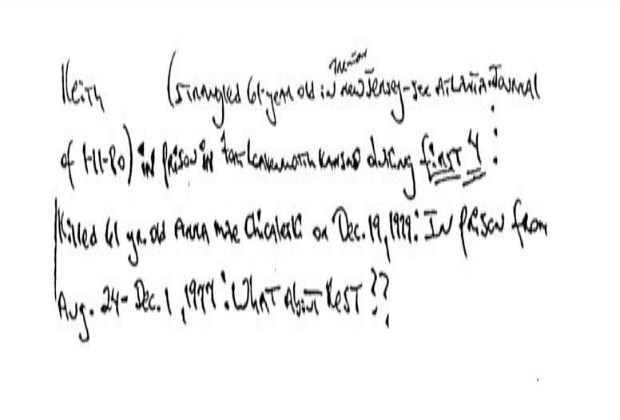 Trenton
Keith (strangled 61-year old in New Jersey-see Atlanta Journal
of 1-11-80) in prison in Fort Leavenworth Kansas during first 4:
Killed 61 yr. old Anna Mae on Dec. 19, 1979: In prison from
Aug. 24-Dec. 1, 1977: What About Rest??